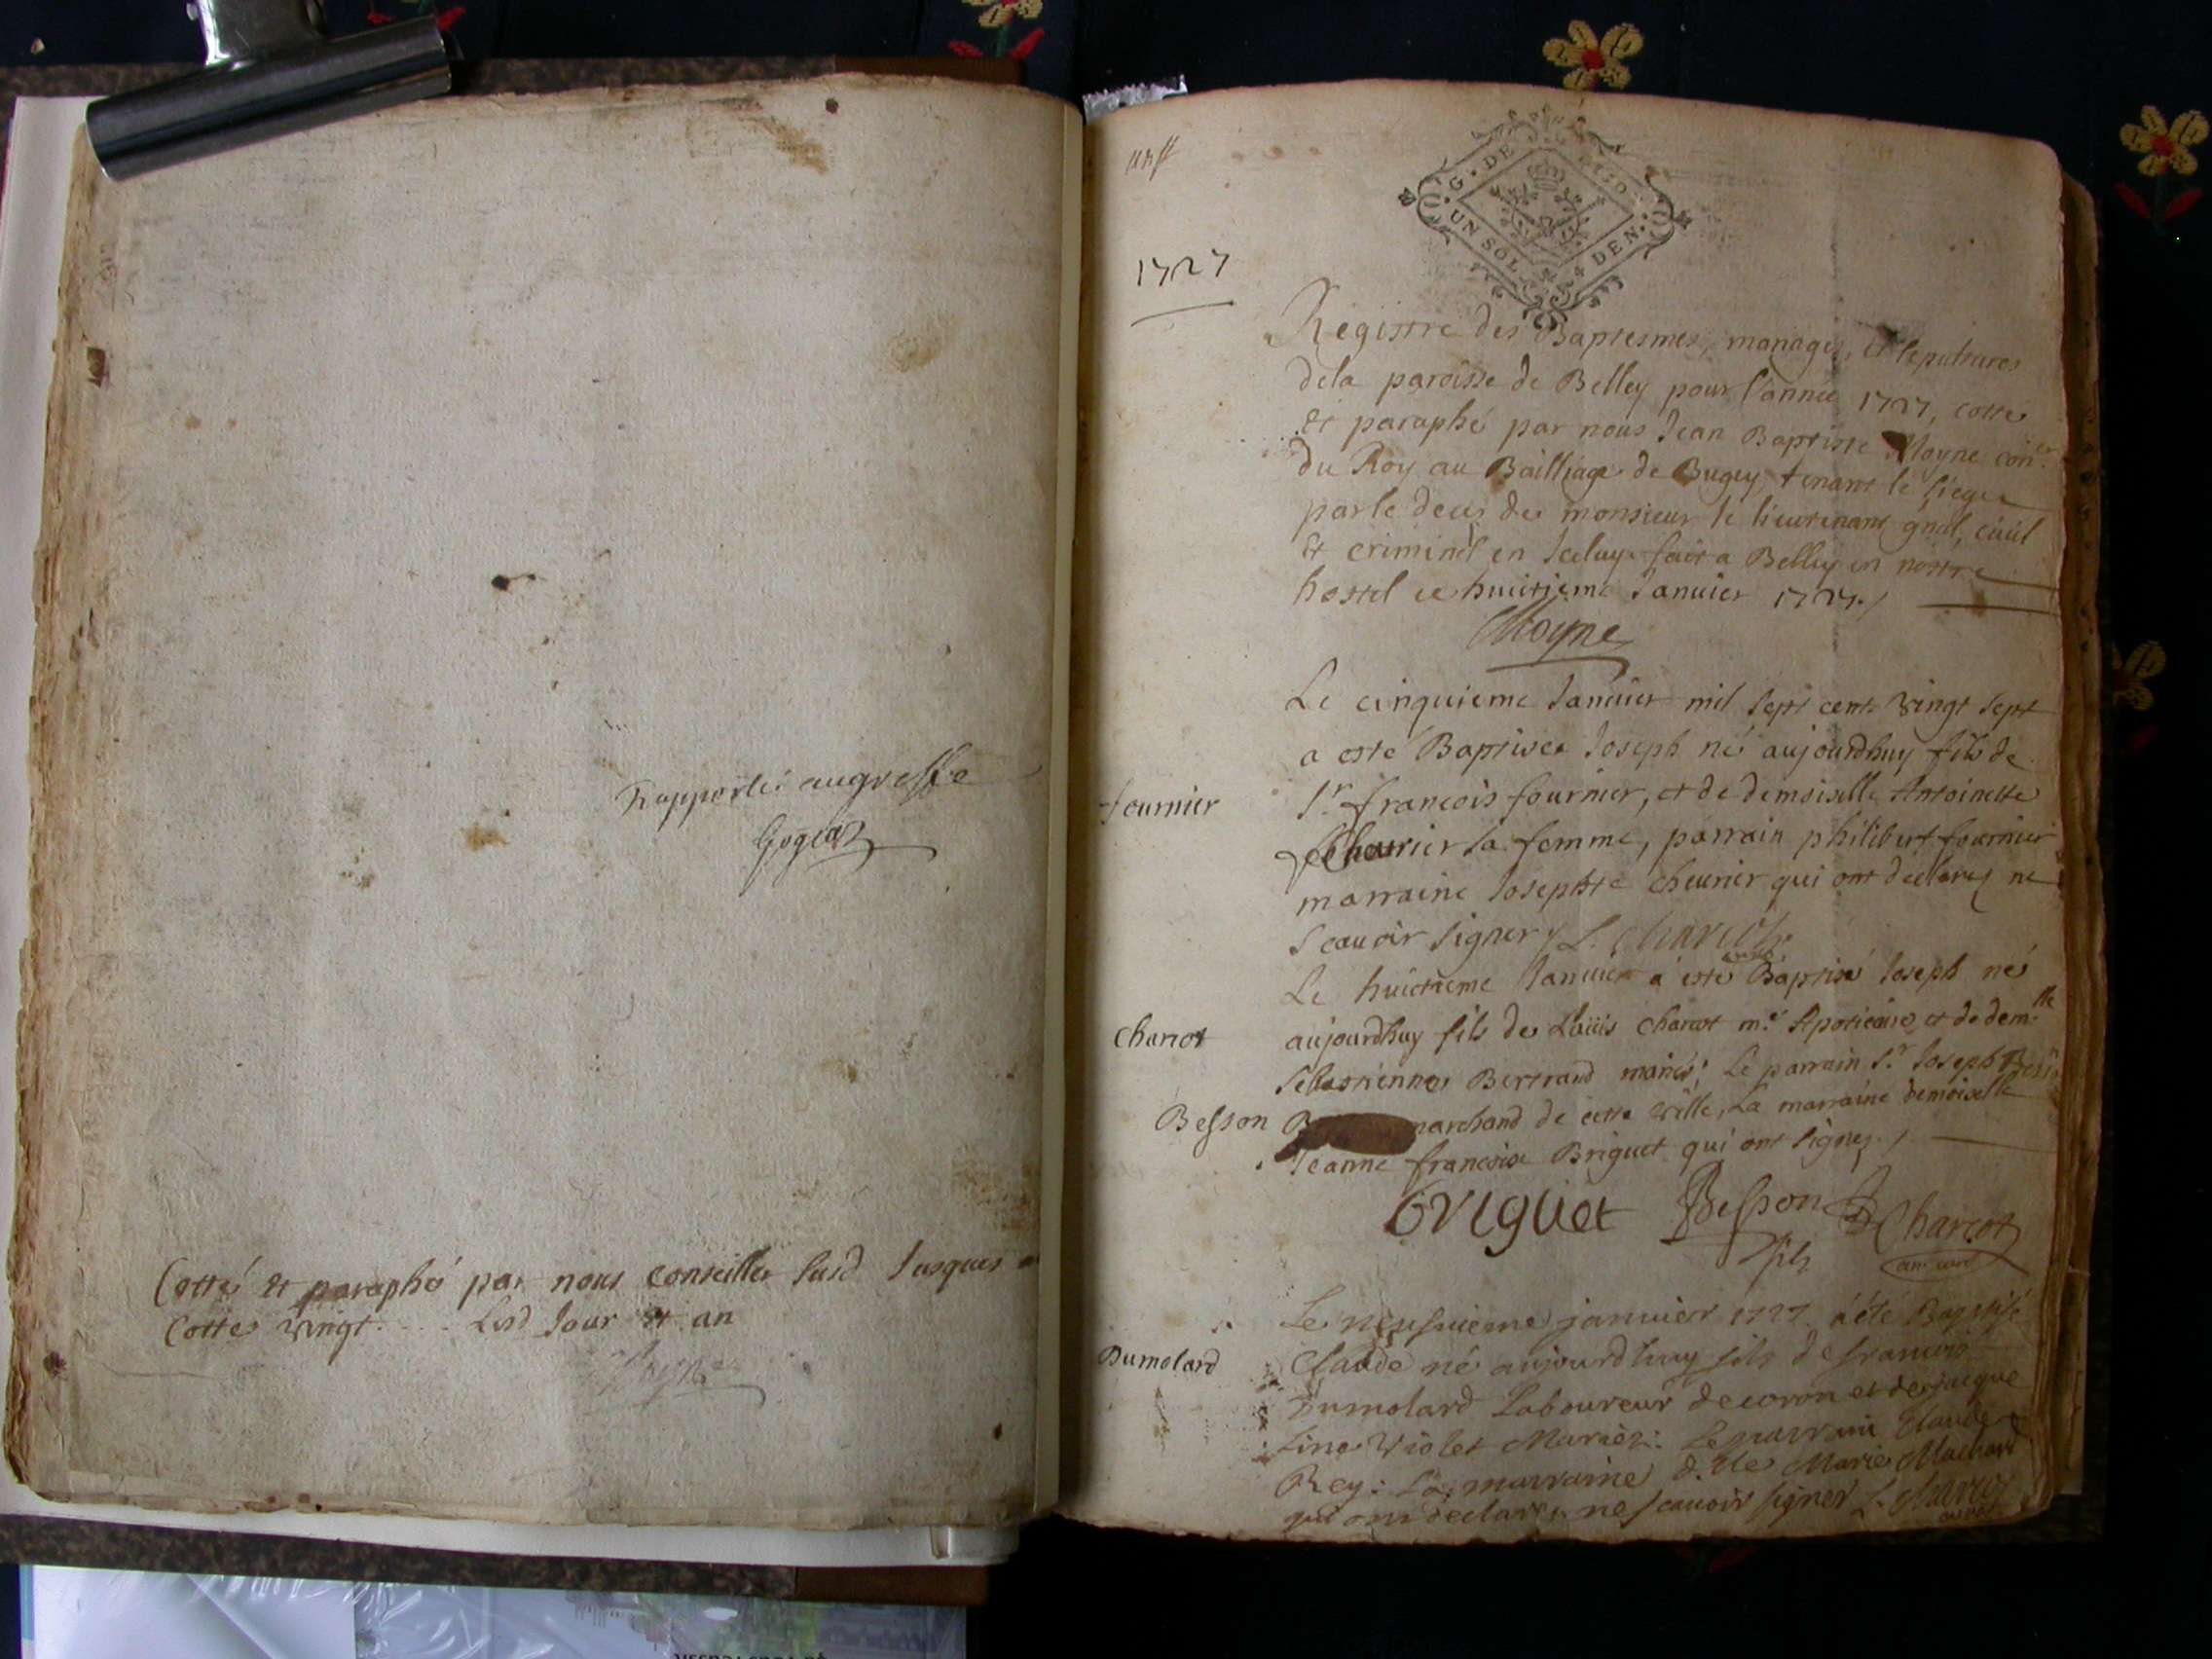 Rapporté au greffe
Cotté et paraphé par nous conseiller susd Jusques a
Cotte vingt.... Lesd Jour et an
Moyne
1727
G. DE
UN SOL
DEN.
Registre des Baptesmes, mariages, et sepultures
dela paroisse de Belley pour l'année 1727, cotté
et paraphé par nous Jean Baptiste Moyne con.er
du Roy au Bailliage de Bugey, tenant le siege
par le deces de monsieur le lieutenant gnal, ciuil
et criminel en Iceluy. fait a Belley en nostre
hostel ce huictieme Januier 1727./
Moyne
Le cinquieme Januier mil sept cent vingt sept
a esté Baptisée Joseph né aujourdhuy fils de
fournier
Sr. francois fournier, et de demoiselle Antoinette
Cheurier sa femme, parrain philibert fournier
marraine Josephte cheurier qui ont déclarez ne
scauoir signer / L. Charcot
Le huictieme Januier a esté Baptisé Joseph né
Charcot
aujourdhuy fils de Loüis Charcot m.e Apoticaire, et de dem.lle
Sebastienne Bertrand mariés: Le parrain Sr. Joseph
Besson
marchand de cette ville, La marraine demoiselle
Jeanne francoise Briguet qui ont signez./
briguet Besson Charcot
fils
Le neufuieme januier 1727 a été Baptisé
Dumolard
Claude né aujourdhuy fils de francois
Dumolard Laboureur de coron et de Jacque
line Violet Mariéz: Le parrain Claude
Rey: La marraine d.lle Marie Machard
qui ont declaré ne scauoir signer L. Charcot